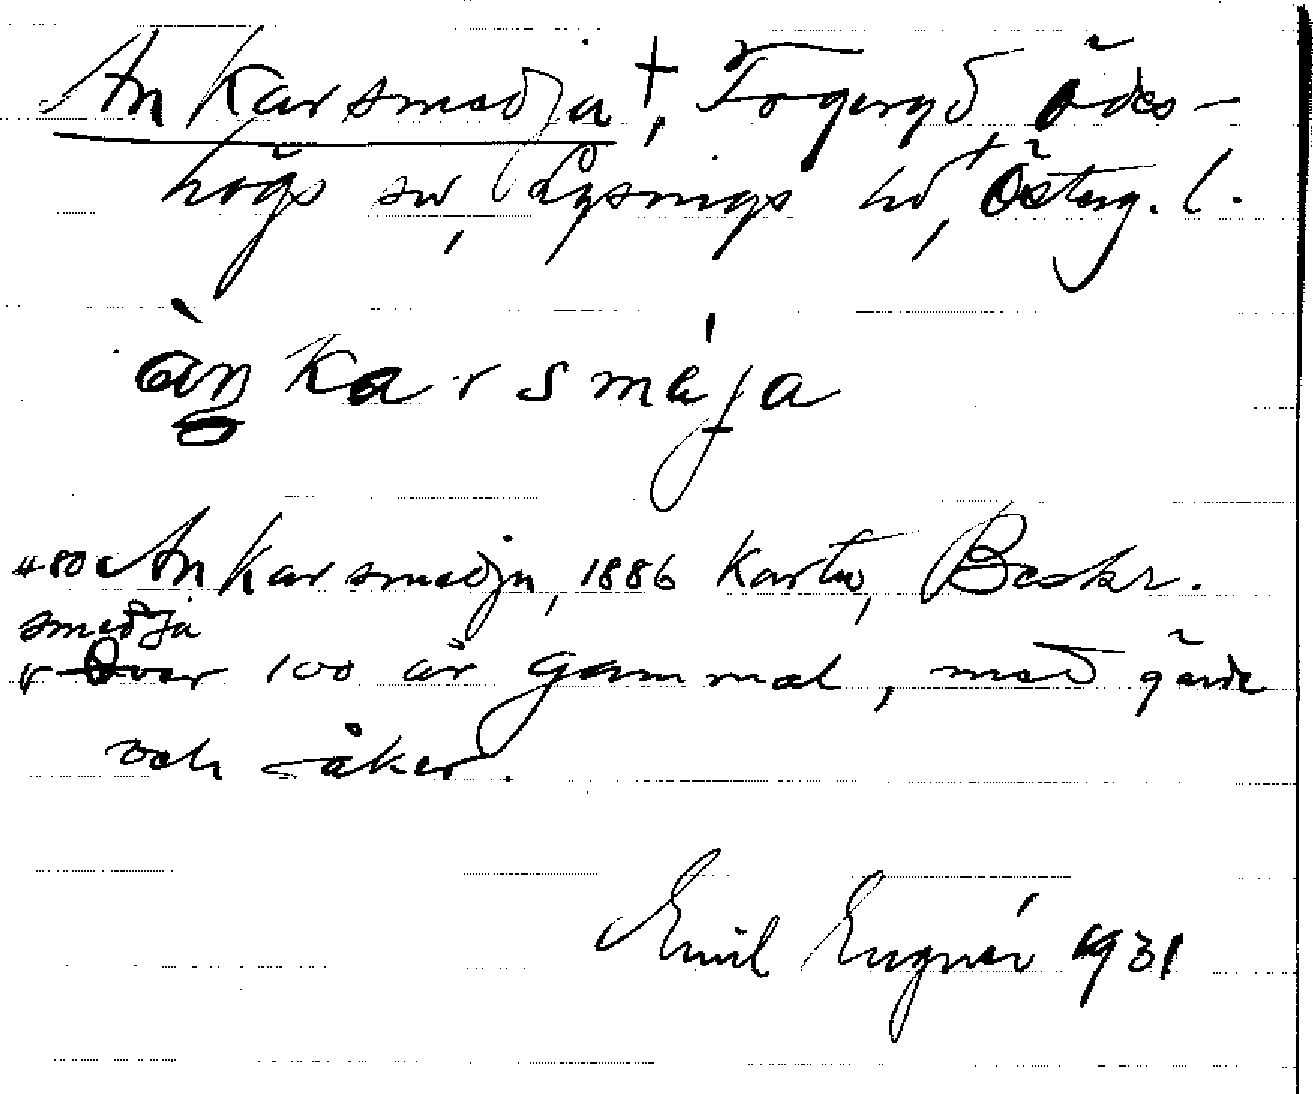 Ankarsmedja †, Fogeryd, Ödes-
högs sn, Lysings hd, Österg. l.
àn̥karsméja
480 Ankarsmedja, 1886 Karta, Beskr.
smedja
Över 100 år gammal, med gärde
och åker.
Emil 1931